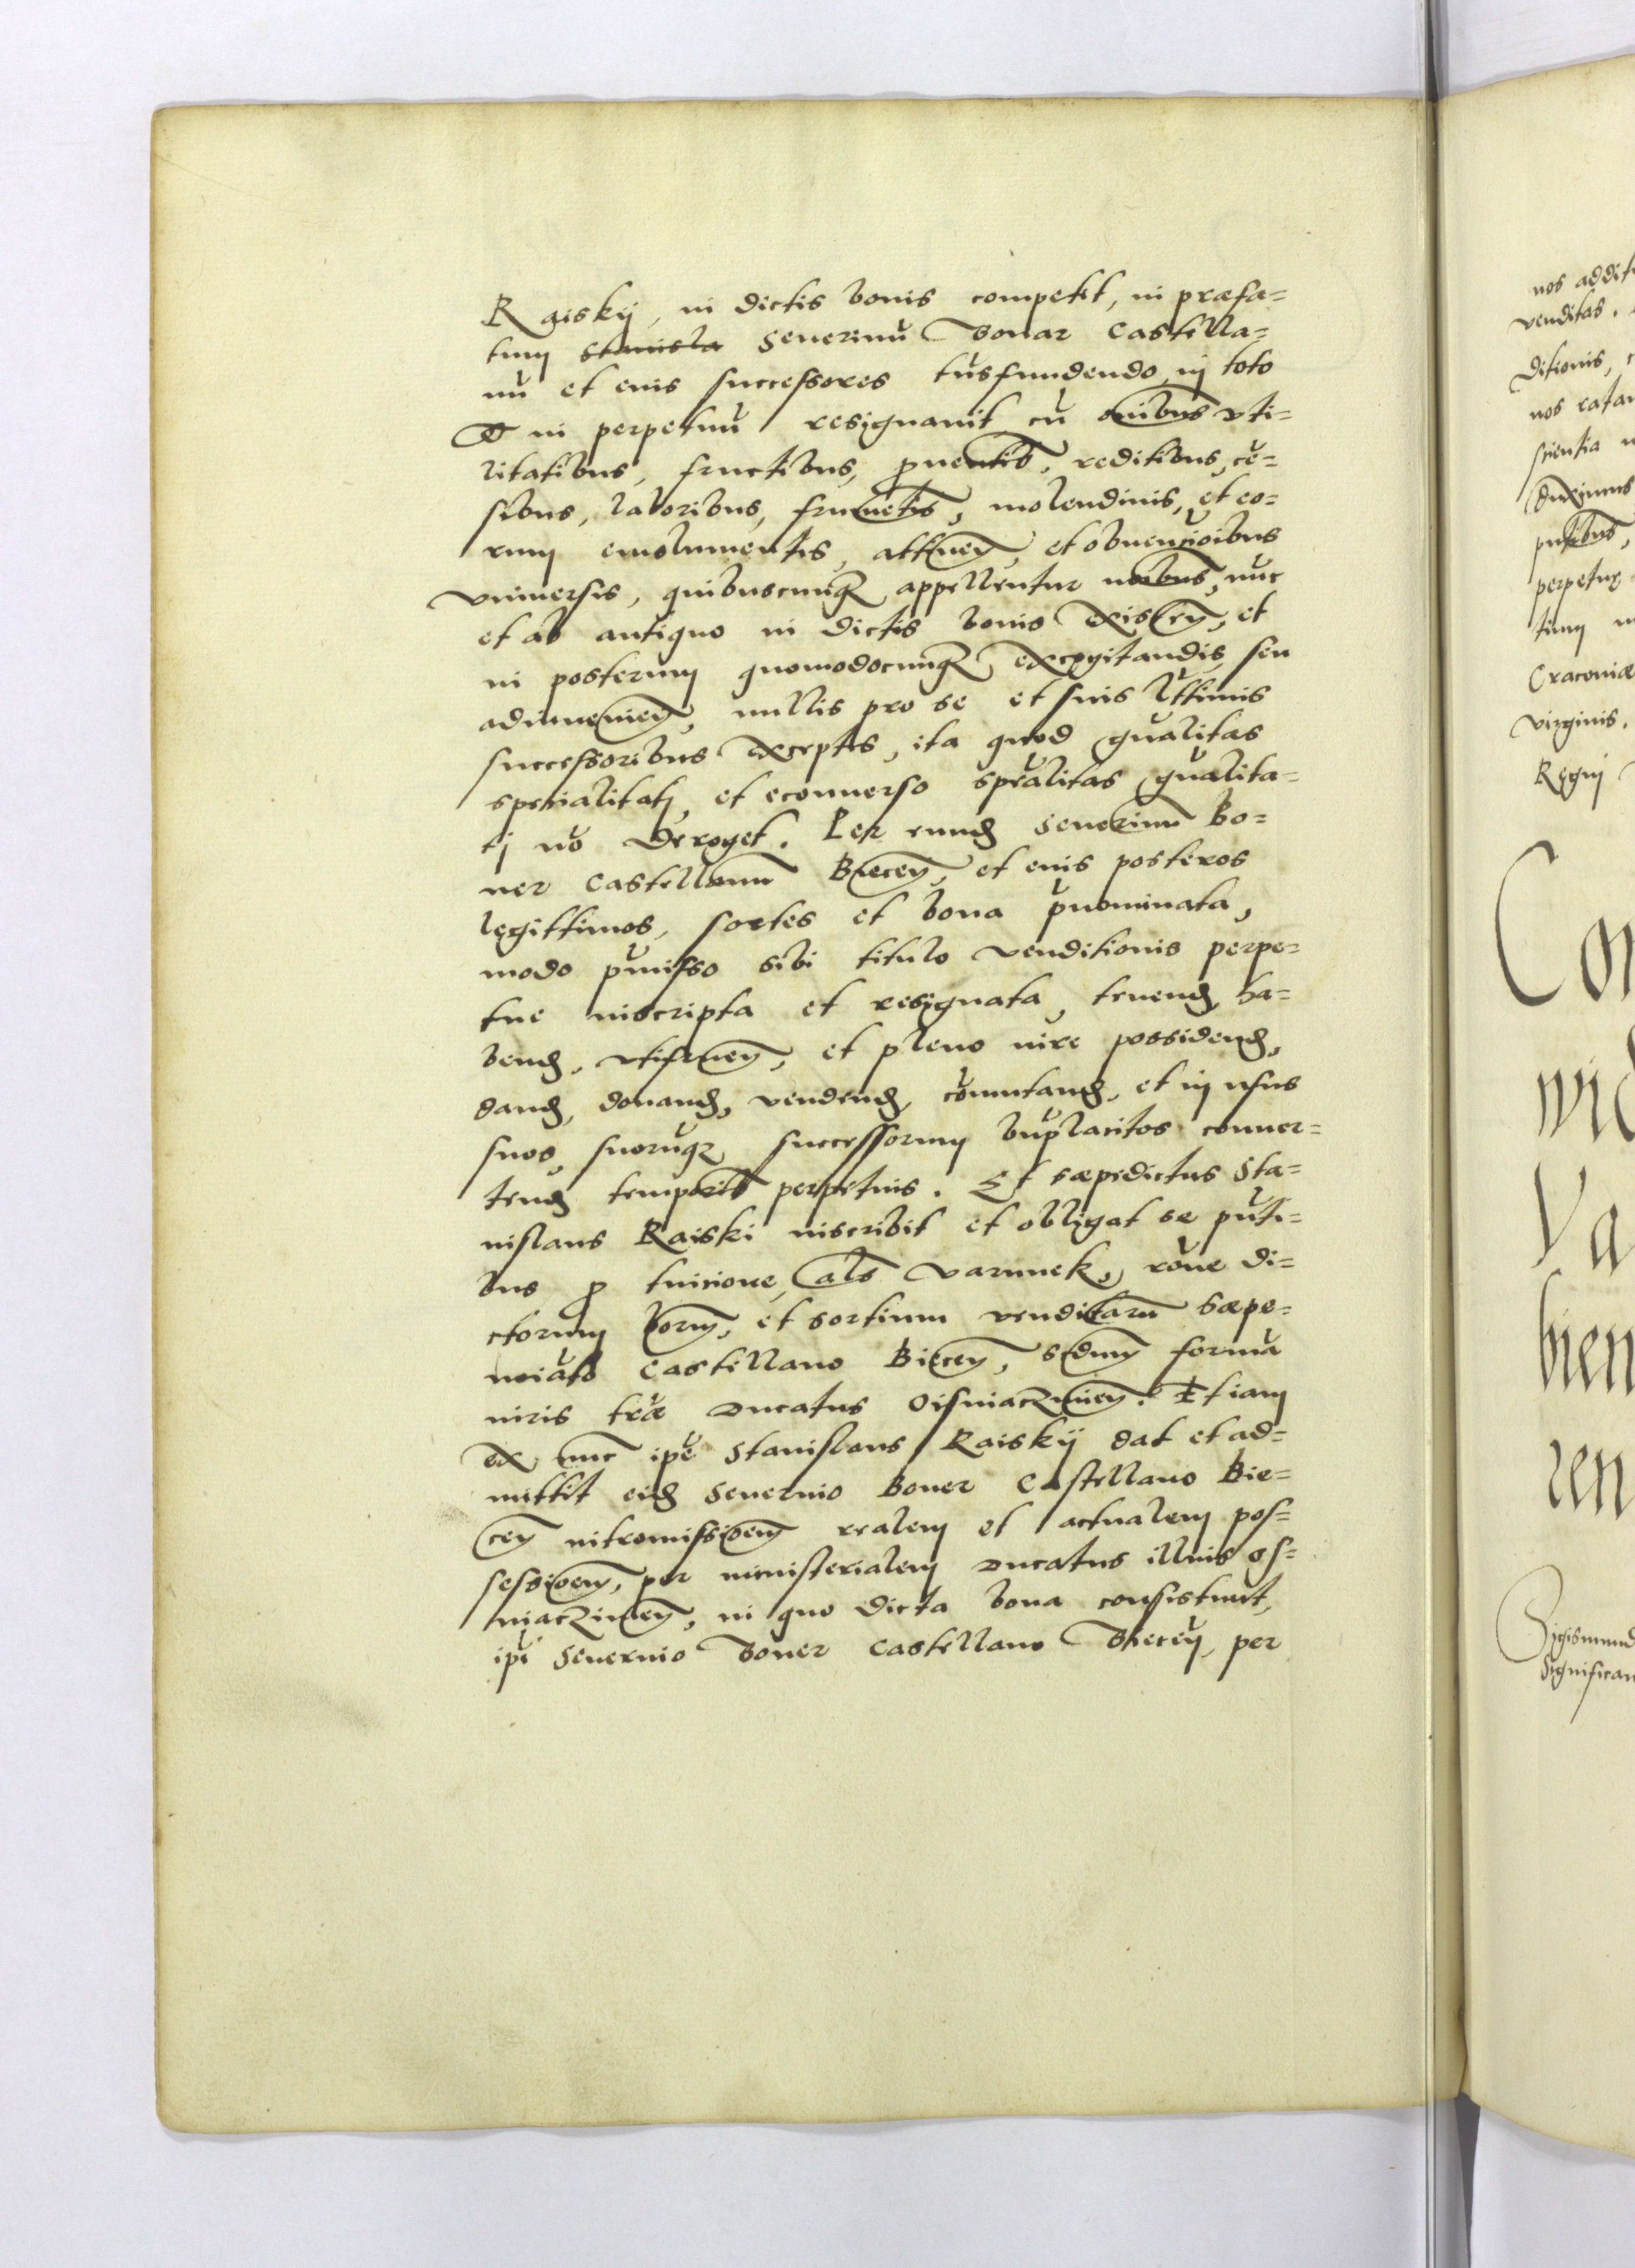 Raiskij, in dictis bonis competit, in præfa=
tum Stanisla Seuerinū Bonar Castella=
nū et eius successores tūsfundendo, in toto
& in perpetuū resignauit, cū oībus vti=
litatibus, fructibus, puentib, reditibus, cē=
sibus, laboribus, frumētis, molendinis, et eo=
rum emolumentis, attinen, et obuencioībus
vniuersis, quibuscunq appellentur noībus, nūc
et ab antiquo in dictis bonis existen, et
in posterum quomodocunq excogitandis seu
adinuenien, nullis pro se et suis lttimis
successoribus exceptis, ita quod qualitas
specialitati, et econuerso spealitas qualita=
ti nō deroget. Per eund Seuerinū Bo=
ner Castellanū Biecen, et eius posteros
legittimos, sortes et bona pnominata,
modo pmisso sibi titulo venditionis perpe=
tue inscripta et resignata, tenend, ha=
bend, vtifruen, et pleno iure possidend,
dand, donand, vendend, cōmutand, et in vsus
suos, suorūq successorum bnplacitos conuer=
tend temporib perpetuis. Et sæpedictus Sta=
nislaus Raiski inscribit et obligat se pnti=
bus p tuicione, als warunek, rōne di=
ctorum bonorum, et sortium venditarū sæpe=
noīato Castellano Biecen, scdum formā
iuris træ Ducatus Oswiaczimien. Etiam
ex nunc ipe Stanislaus Raiskij dat et ad=
mittit eid Seuerino Boner Castellano Bie=
cen intromissioem realem et actualem pos=
sessioem, per ministerialem Ducatus illius Os=
wiaczimien, in quo dicta bona consistunt,
ipi Seuerino Boner Castellano Biecen, per
nos addit
venditas.
ditionis,
nos rata
scientia
duximus
pntibus,
perpetuę
tum
Cracouiæ
virginis.
Regni
Con
wid
Va
bien
ren
Sigismund
Significam